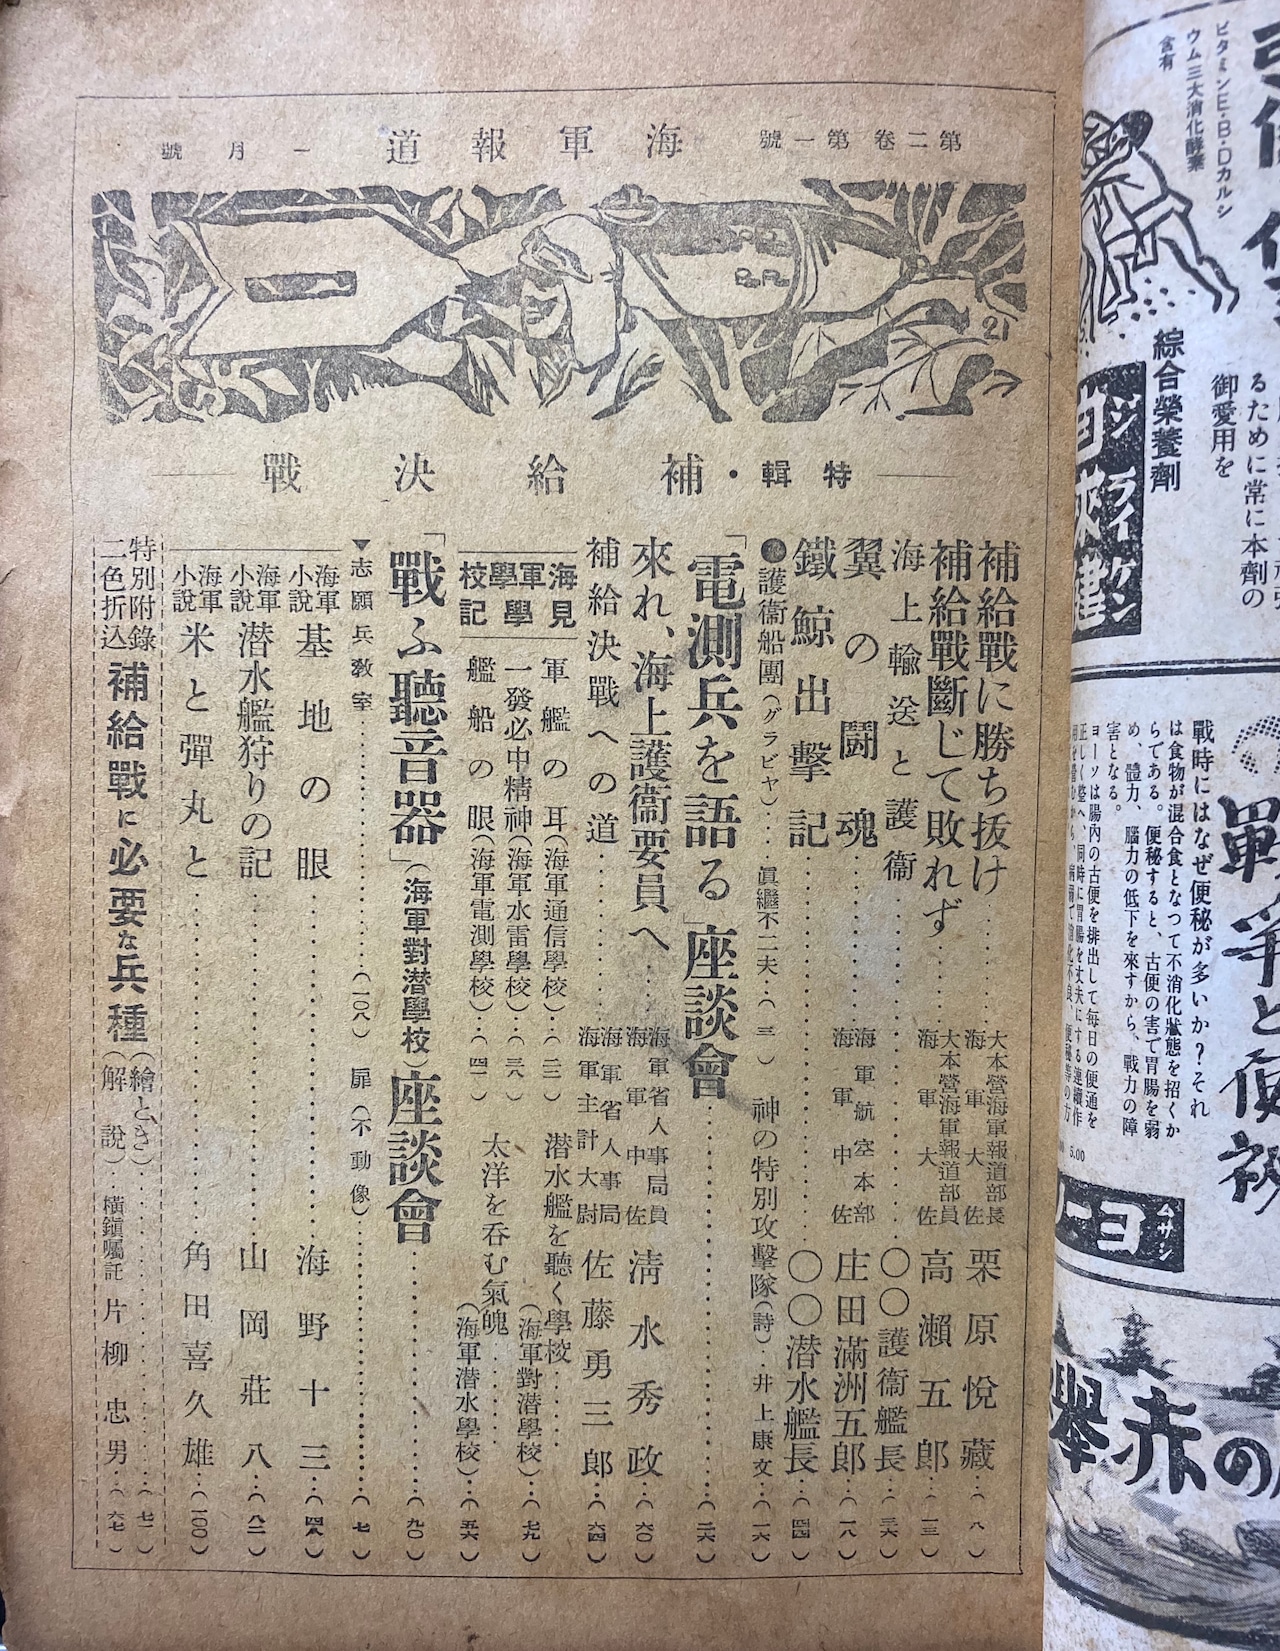 第二卷第一號
海軍報道
一月號
21
特輯・補給決戰
補給戰に勝ち抜け……大本營海軍報道部長 海軍大佐 栗原悅藏…(八)
補給戰斷じて敗れず……大本營海軍報道部員 海軍大佐 高瀨五郎…(一三)
海上輸送と護衞……〇〇護衞艦長…(三六)
翼の闘魂……海軍航空本部 海軍中佐 庄田滿洲五郎…(一八)
鐵鯨出擊記……〇〇潜水艦長…(四四)
護衞船團(グラビヤ)…眞繼不二夫…(三)
神の特別攻擊隊(詩)…井上康文…(一六)
「電測兵を語る」座談會……(二六)
來れ、海上護衞要員へ……海軍省人事局員 海軍中佐 淸水秀政…(六〇)
補給決戰への道……海軍省人事局 海軍主計大尉 佐藤勇三郎…(六四)
海軍學校見學記
軍艦の耳(海軍通信學校)…(二二)
一發必中精神(海軍水雷學校)…(三八)
艦船の眼(海軍電測學校)…(四一)
潜水艦を聽く學校……(海軍對潜學校)…(七九)
太洋を呑む氣魄……(海軍潜水學校)…(五六)
「戰ふ聽音器」(海軍對潜學校)座談會……(九〇)
▼志願兵敎室……(一〇八)
扉(不動像)……(七)
海軍小說 基地の眼……海野十三…(四八)
海軍小說 潜水艦狩りの記……山岡莊八…(八二)
海軍小說 米と彈丸と……角田喜久雄…(一〇〇)
特別附錄 二色折込 補給戰に必要な兵種
(繪とき)……(七一)
(解說)…橫鎭囑託 片柳忠男…(六七)
ビタミンE・B・Dカルシ
ウム三大消化酵素
含有
綜合榮養劑
るために常に本劑の
御愛用を
戰爭と便祕
戰時にはなぜ便秘が多いか?それ
は食物が混合食となつて不消化狀態を招くか
らである。便秘すると、古便の害で胃腸を弱
め、體力、腦力の低下を來すから、戰力の障
害となる。
ヨーソは腸內の古便を排出して每日の便通を
正しく整へ、同時に胃腸を丈夫にする連續作
5.00
ムサシ
ヨーソ
の赤